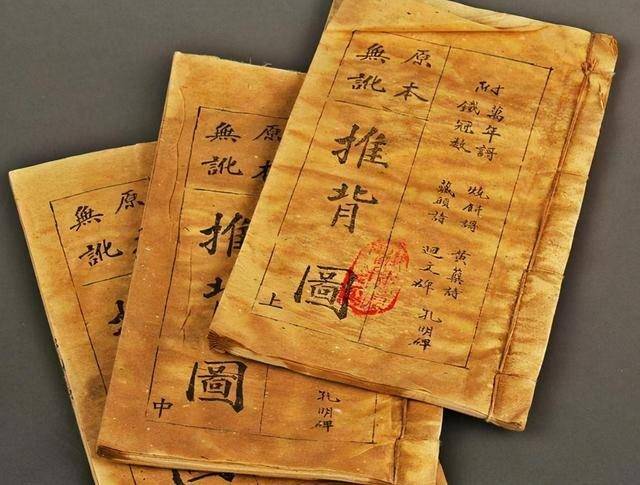 附
萬年謌
鐵冠數
燒餅謌
藏頭詩
黃蘗詩
迴文碑
孔明碑
原本
無訛
推背圖
上
原本
無訛
推背圖
中
孔明碑
原本
無訛